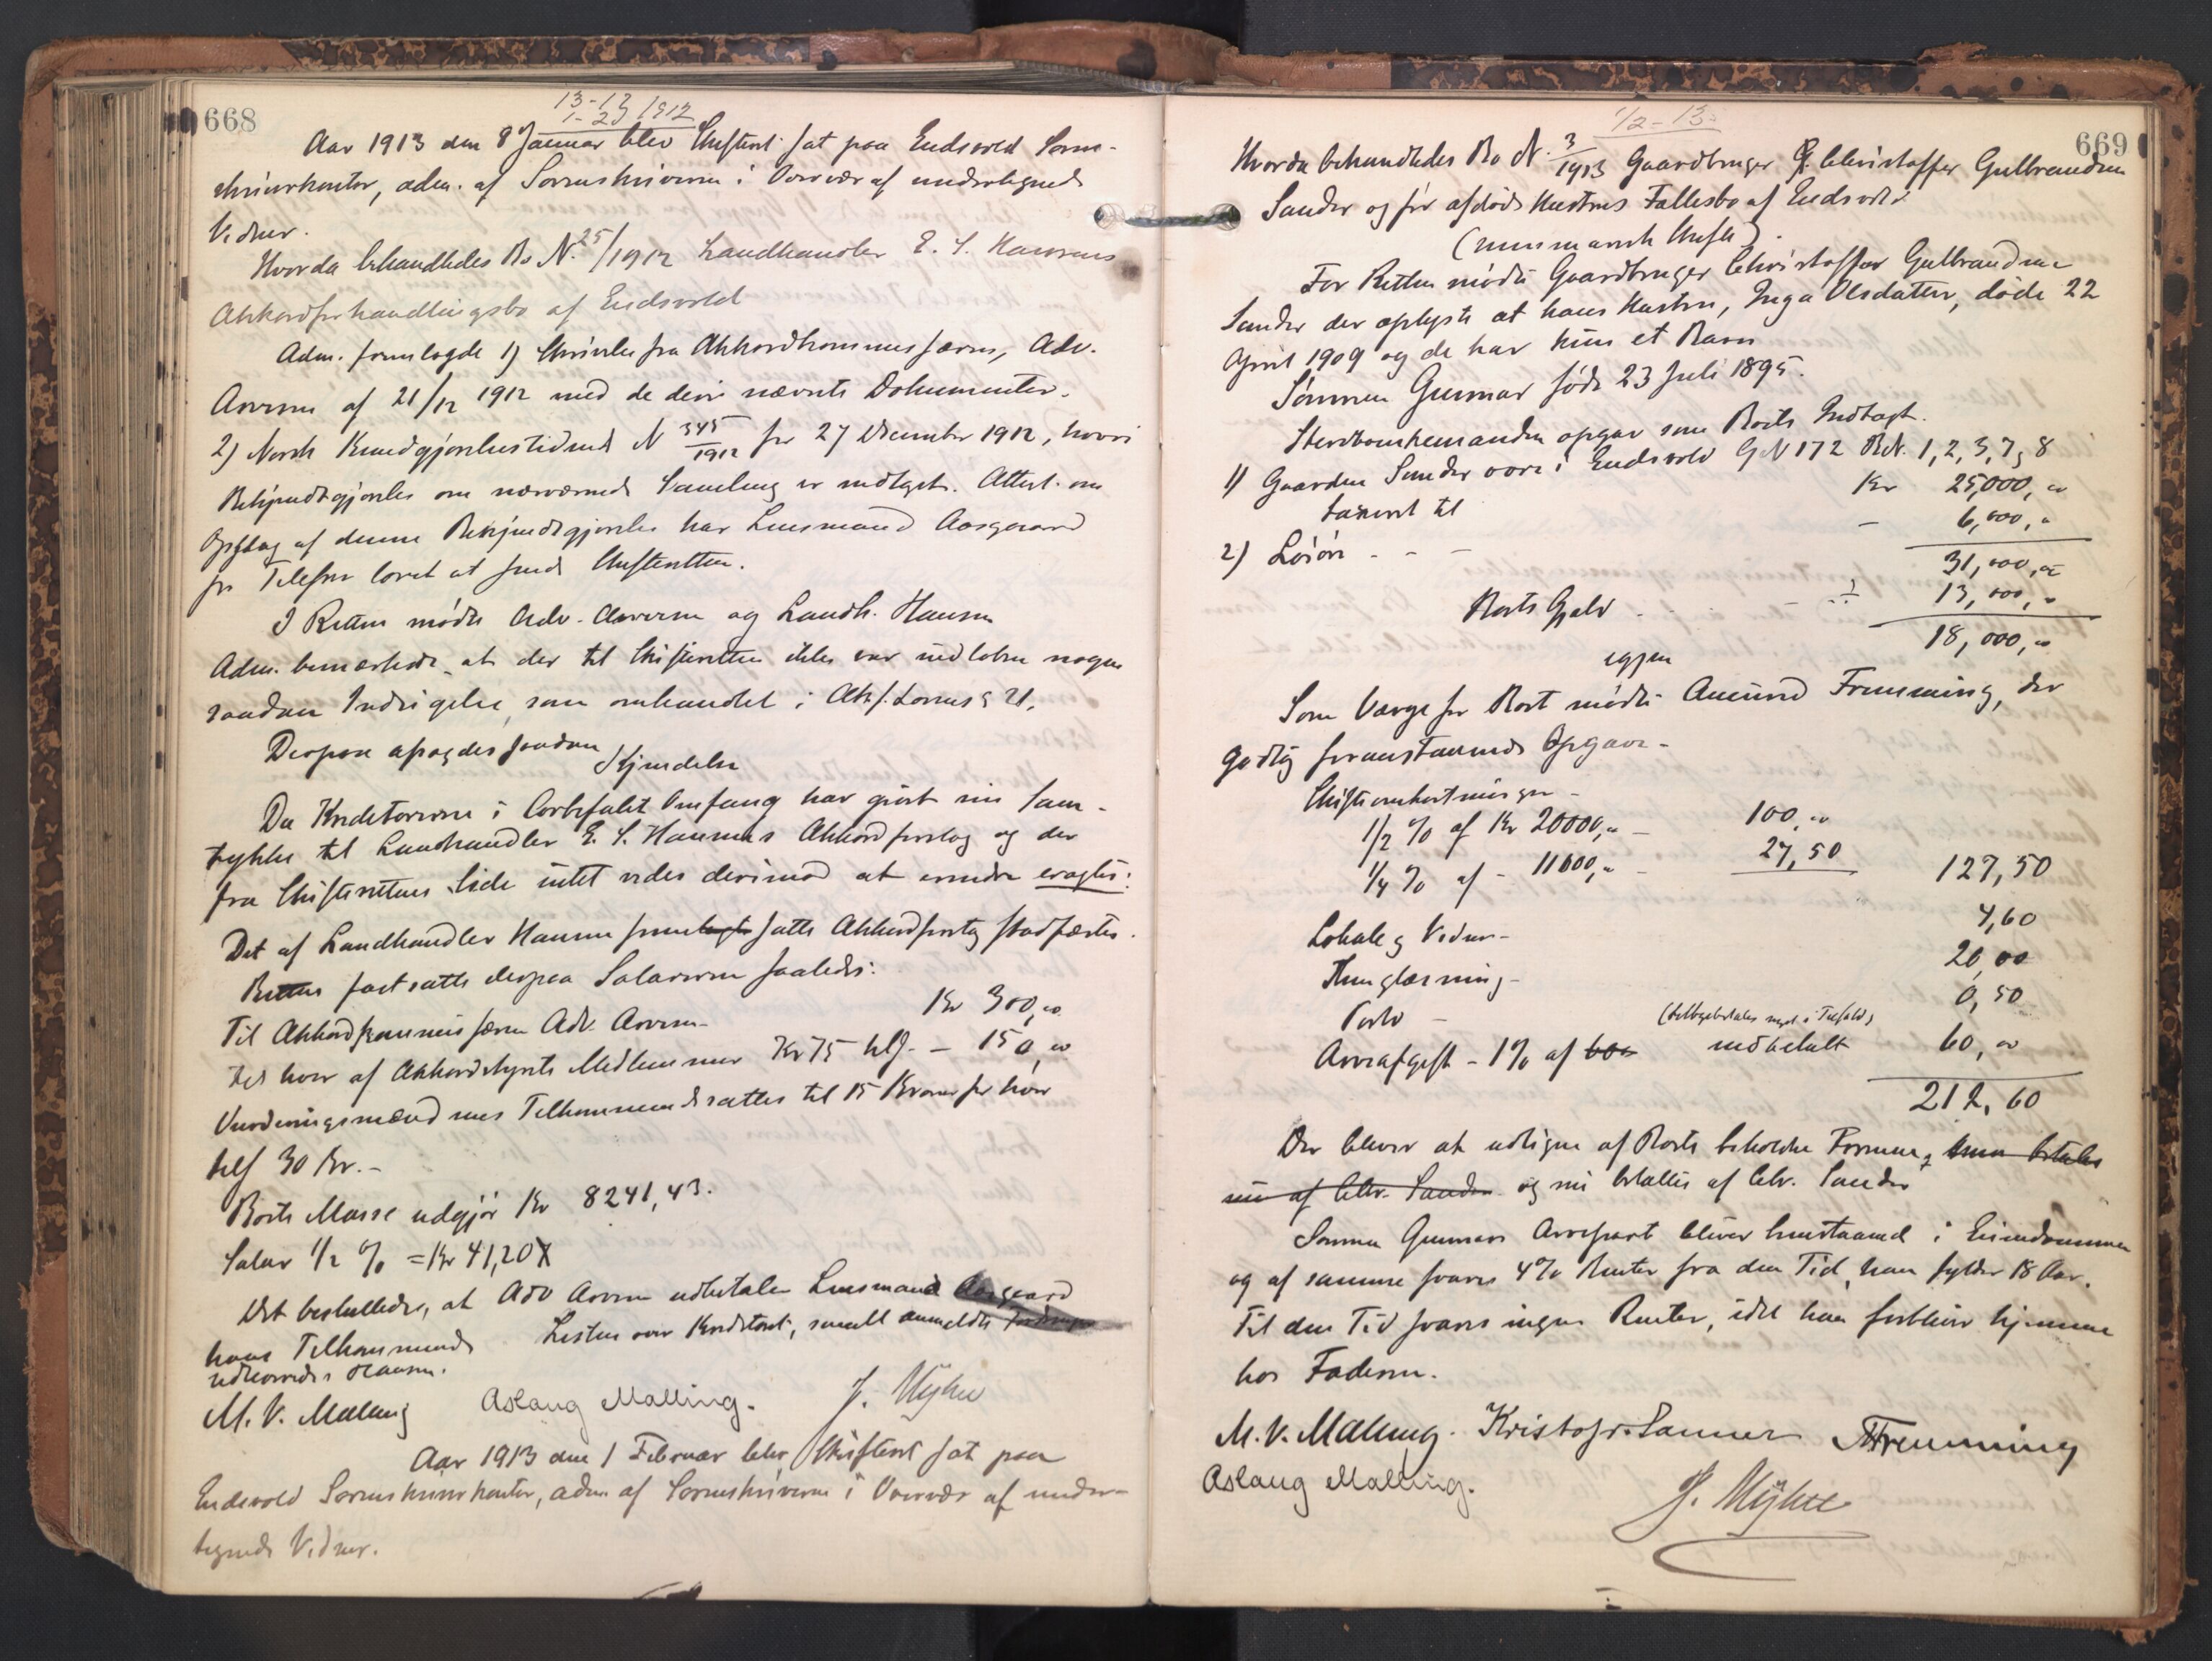 668
13-13 1912
1-23
Aar 1913 den 8 Januar blev Skifteret sat paa Eidsvold Soren-
skriverkontor, adm. af Sorenskriveren i Overvær af undertegnede
Vidner.
Hvorda behandledes Bo N. 25/1912 Landhandler E. S. Hansens
Akkordforhandlingsbo af Eidsvold
Adm. fremlagde 1) Skrivelse fra Akkordkommissæren, Adv.
Arvesen af 21/12 1912 med de deri nævnte Dokumenter.
2) Norsk Kundgjørelsestidende N 345/1912 for 27 December 1912, hvori
Bekjendtgjørelse om nærværende Samling er indtaget. Attest om
Opslag af denne Bekjendtgjørelse har Lensmand Aasgaard
pr Telefon lovet at sende Skifteretten.
I Retten mødte Adv. Arvesen og Landh. Hansen
Adm. bemærkede at der til Skifteretten ikke var indløben nogen
saadan Indsigelse, som omhandlet i Akk. Lovens § 21.
Derpaa afsagdes saadan
Kjendelse
Da Kreditorerne i lovbefalet Omfang har givet sin Sam-
tykke til Landhandler E. S. Hansens Akkordforslag og der
fra Skifterettens Side intet vides derimod at erindre eragtes:
Det af Landhandler Hansen fremlagte satte Akkordforslag stadfæstes.
Retten fastsatte derpaa Salærerne saaledes:
Til Akkordkommissæren Adv. Arvesen Kr 300,00
Til hver af Akkordstyrets Medlemmer Kr 75 tils. - 150,00
Vurderingsmændenes Tilkommende sættes til 15 Kroner for hver
tils 30 Kr.-
Boets Masse udgjør Kr 8241,43.
Salær 1/2 % = Kr 41,20
Det besluttedes, at Adv Arvesen udbetaler Lensmand Aasgaard
hans Tilkommende Listen over Kreditorer, samt anmeldte Fordringer
udleveredes Hansen.
M. V. Malling Aslaug Malling. J. Myhre
Aar 1913 den 1 Februar blev Skifteret sat paa
Eidsvold Sorenskriverkontor, adm af Sorenskriveren i Overvær af under-
tegnede Vidner.
1/2-13
669
Hvorda behandledes Bo N. 3/1913 Gaardbruger Christoffer Gulbrandsen
Sander og før afdøde Hustrus Fællesbo af Eidsvold
(mindelig Skifte).
For Retten mødte Gaardbruger Christoffer Gulbrandsen
Sander der oplyste at hans Hustru, Inga Olsdatter, døde 22
April 1909 og de har kun et Barn
Sønnen Gunnar født 23 Juli 1895.
Sterbboenkemanden opgav som Boets Indtægt.
1) Gaarden Sander øvre i Eidsvold GN 172 BN. 1, 2, 3, 7, 8
taxeret til Kr 25,000,00
2) Løsøre - - - 6,000,00
31,000,00
Boets Gjæld - ÷ 13,000,00
18,000,00
igjen
Som Værge for Boet mødte Amund Fremming, der
godtog foranstaaende Opgave.
Skifteomkostninger
1/2 % af Kr 20000,00 - 100,00
1/4 % af - 11000,00 - 27,50 127,50
Lokale og Vidner- 4,60
Thinglæsning- 20,00
Porto - 0,50
(tilbagebetales noget i Tilfælde)
Arveafgift - 1% af indbetalt 60,00
212,60
Der bliver at udligne af Boets beholdne Formue, som betales
nu af Chr. Sander og nu betaltes af Chr. Sander
Sønnen Gunnars Arvepart bliver henstaaende i Eiendommen
og af samme svares 4% Renter fra den Tid, han fylder 18 Aar.
Til den Tid svares ingen Renter, idet han forbliver hjemme
hos Faderen.
M. V. Malling. Kristofer Sanner AFremming
Aslaug Malling. J. Myhre